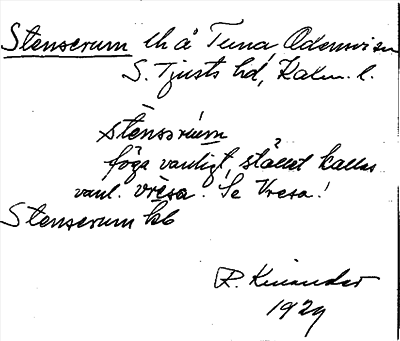 Stenserum lh å Tuna, Odensvi sn
S. Tjusts hd, Kalm. l.
stensrium
föga vanligt, stället kallas
vanl. vresa. Se Vresa!
Stenserum kb
R. Kinander
1929